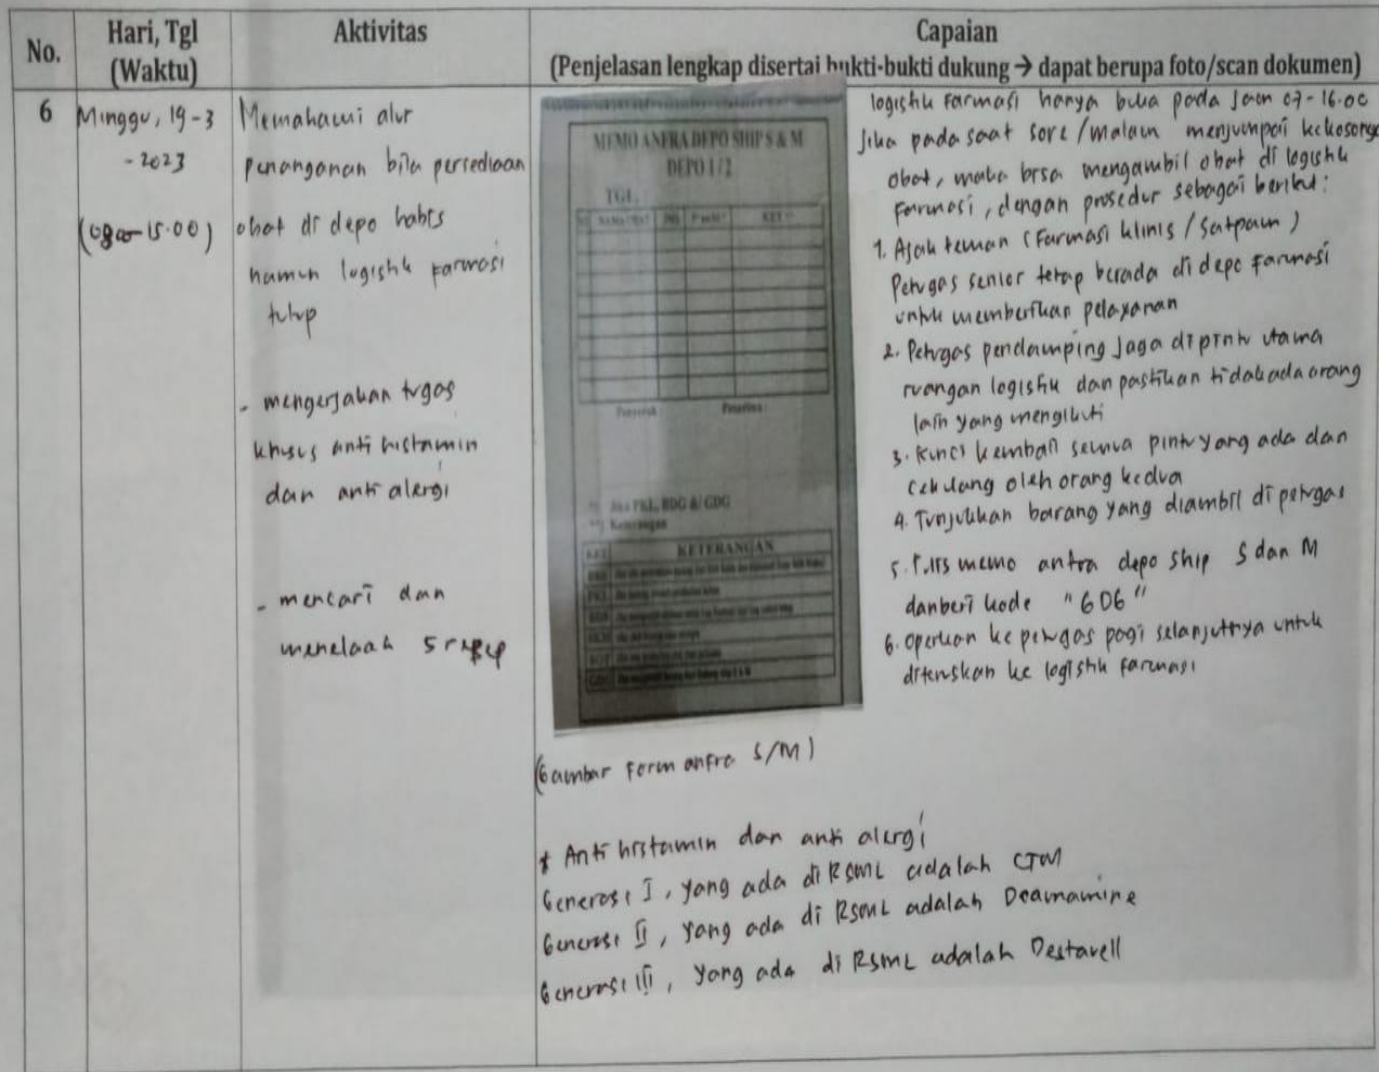 No.
Hari, Tgl
(Waktu)
Aktivitas
Capaian
(Penjelasan lengkap disertai bukti-bukti dukung → dapat berupa foto/scan dokumen)
6
Minggu, 19-3
-2023
15.00)
Memahami alur
penanganan bila persediaan
obat di depo habis
namun logistik farmasi
tutup
- mengerjakan tugas
khusus anti histamin
dan anti alergi
- mencari dan
menelaah 5 resep
MEMO ANFRA DEPO SHIP S & M
DEPO 1 / 2
TGL
Penerima :
*) Jika PKL, BDG & GDG
**) Keterangan
KET
KETERANGAN
logistik Farmasi hanya buka pada jam 07-16.00
Jika pada saat sore/malam menjumpai kekosong
obat, maka bisa mengambil obat di logistik
farmasi, dengan prosedur sebagai berikut:
1. Ajak teman (Farmasi klinis / Satpam)
Petugas senior tetap berada di depo farmasi
untuk memberikan pelayanan
2. Petugas pendamping Jaga di pintu utama
ruangan logistik dan pastikan tidak ada orang
lain yang mengikuti
3. Kunci kembali semua pintu yang ada dan
cek ulang oleh orang kedua
4. Tunjukkan barang yang diambil di petugas
5. Tulis memo antra depo ship S dan M
dan beri kode "GDG"
6. Operkan ke petugas pagi selanjutnya untuk
diteruskan ke logistik farmasi
(Gambar Form anfra S/M)
* Anti histamin dan anti alergi
Generasi I, yang ada di RSML adalah CTM
Generasi II, yang ada di RSML adalah
Generasi III, yang ada di RSML adalah Destavell